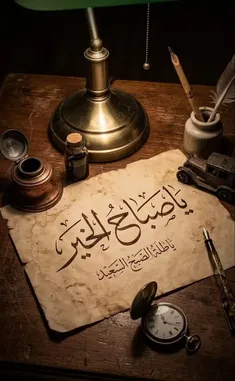 يا صباحُ الخير
يا طلة الصبح السعيد